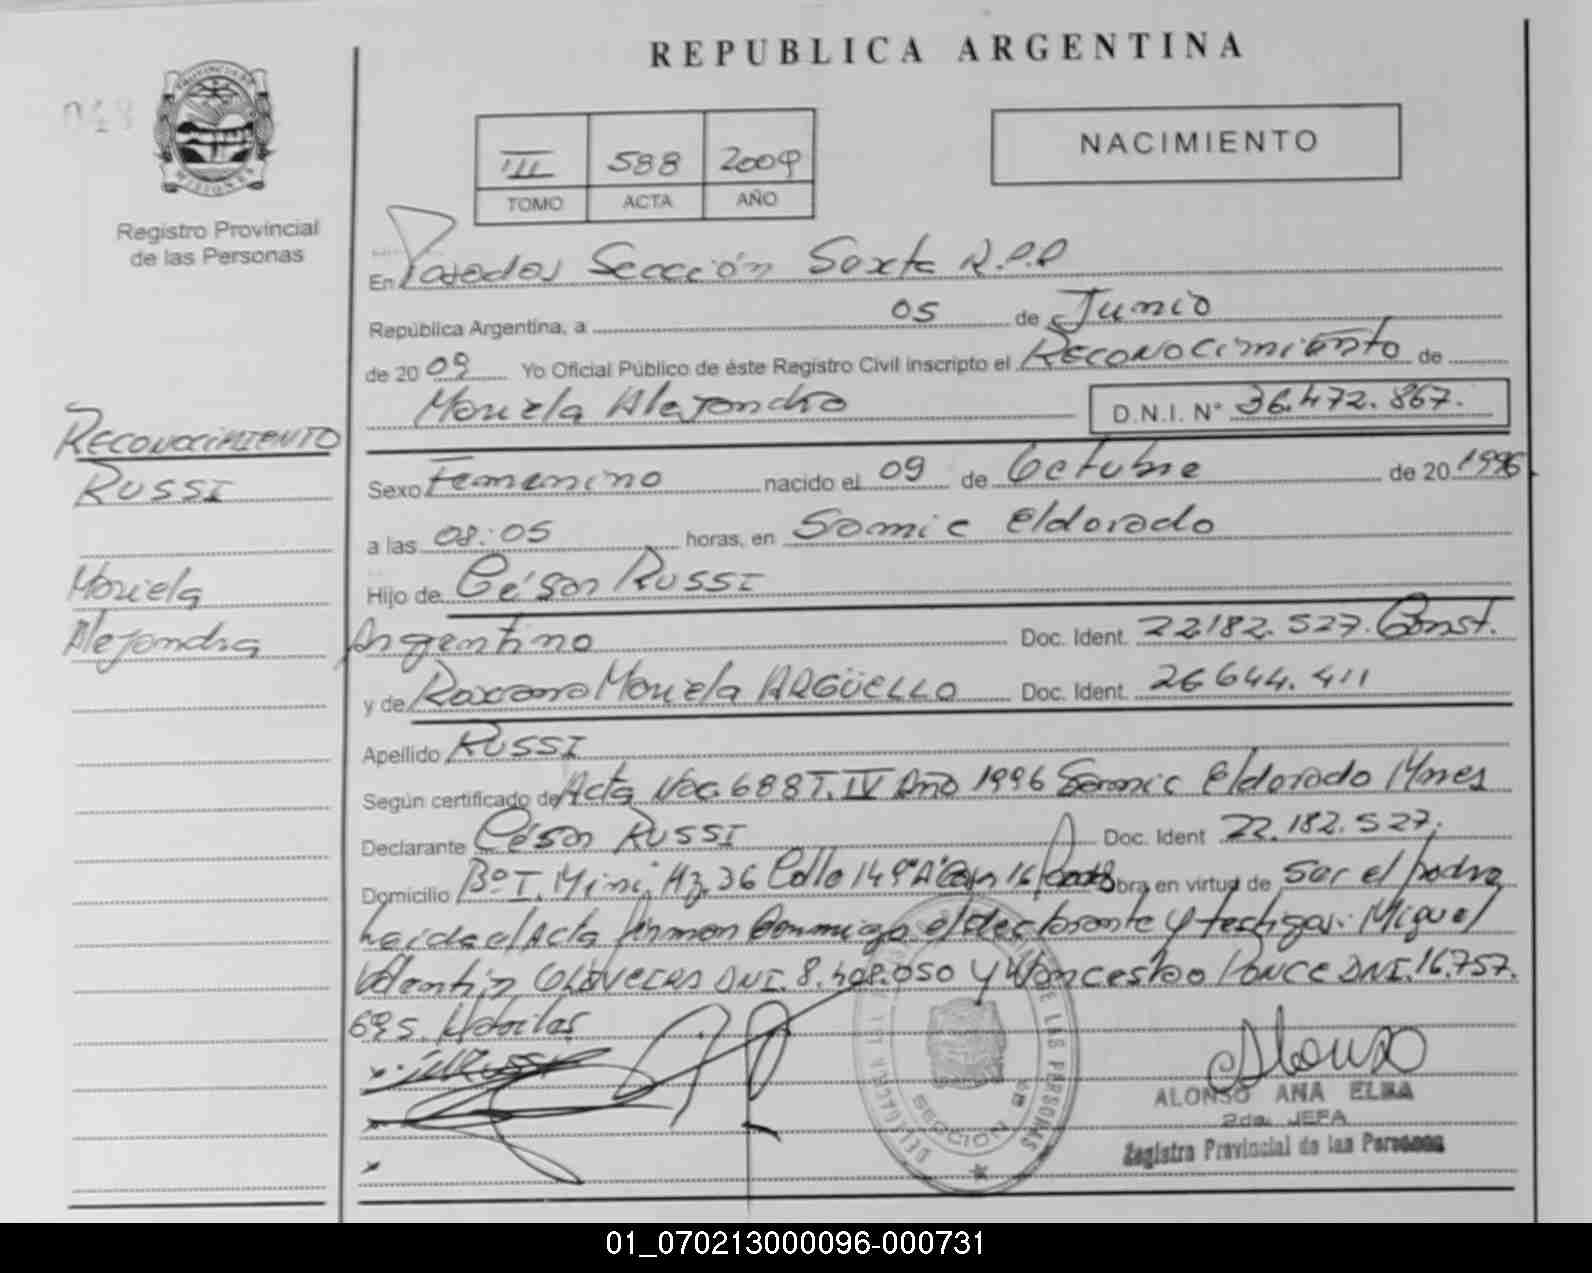 REPUBLICA ARGENTINA
048
PROVINCIA DE
MISIONES
Registro Provincial
de las Personas
III 588 2009
TOMO ACTA AÑO
NACIMIENTO
En Posadas Sección Sexta R.P.P
República Argentina, a 05 de Junio
de 2009 Yo Oficial Público de éste Registro Civil inscripto el Reconocimiento de
Mariela Alejandra D.N.I. Nº 36.472.867.
RECONOCIMIENTO
RUSSI
Mariela
Alejandra
Sexo Femenino nacido el 09 de Octubre de 20 1996
a las 08:05 horas, en Samic Eldorado
Hijo de César RUSSI
Argentino Doc. Ident. 22.182.527. Const.
y de Roxana Mariela ARGÜELLO Doc. Ident. 26 644.411
Apellido RUSSI
Según certificado de Acta Nac. 688 T. IV Año 1996 Samic Eldorado Mnes
Declarante César RUSSI Doc. Ident 22.182.527.
Domicilio Bº I. Mini Mz. 36 Calle 149 "A" Casa 16 Obra en virtud de ser el padre
Leida el Acta firman Conmigo el declarante y testigos: Miguel
Valentin DNI. 8.408.050 y Wenceslao PONCE DNI. 16.757.
695. Habiles
Russi
DELEGACION
DE LAS PERSONAS
SECCION 6ª
Alonso
ALONSO ANA ELBA
2da. JEFA
Registro Provincial de las Personas
01_070213000096-000731